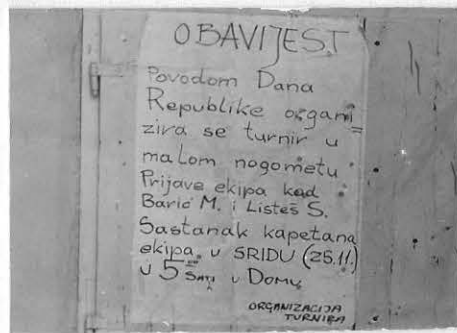 OBAVIJEST
Povodom Dana
Republike organi=
zira se turnir u
malom nogometu.
Prijave ekipa kod
Barić M. i Listeš S.
Sastanak kapetana
ekipa u SRIDU (25.11.)
u 5 SATI u Domu
ORGANIZACIJA
TURNIRA